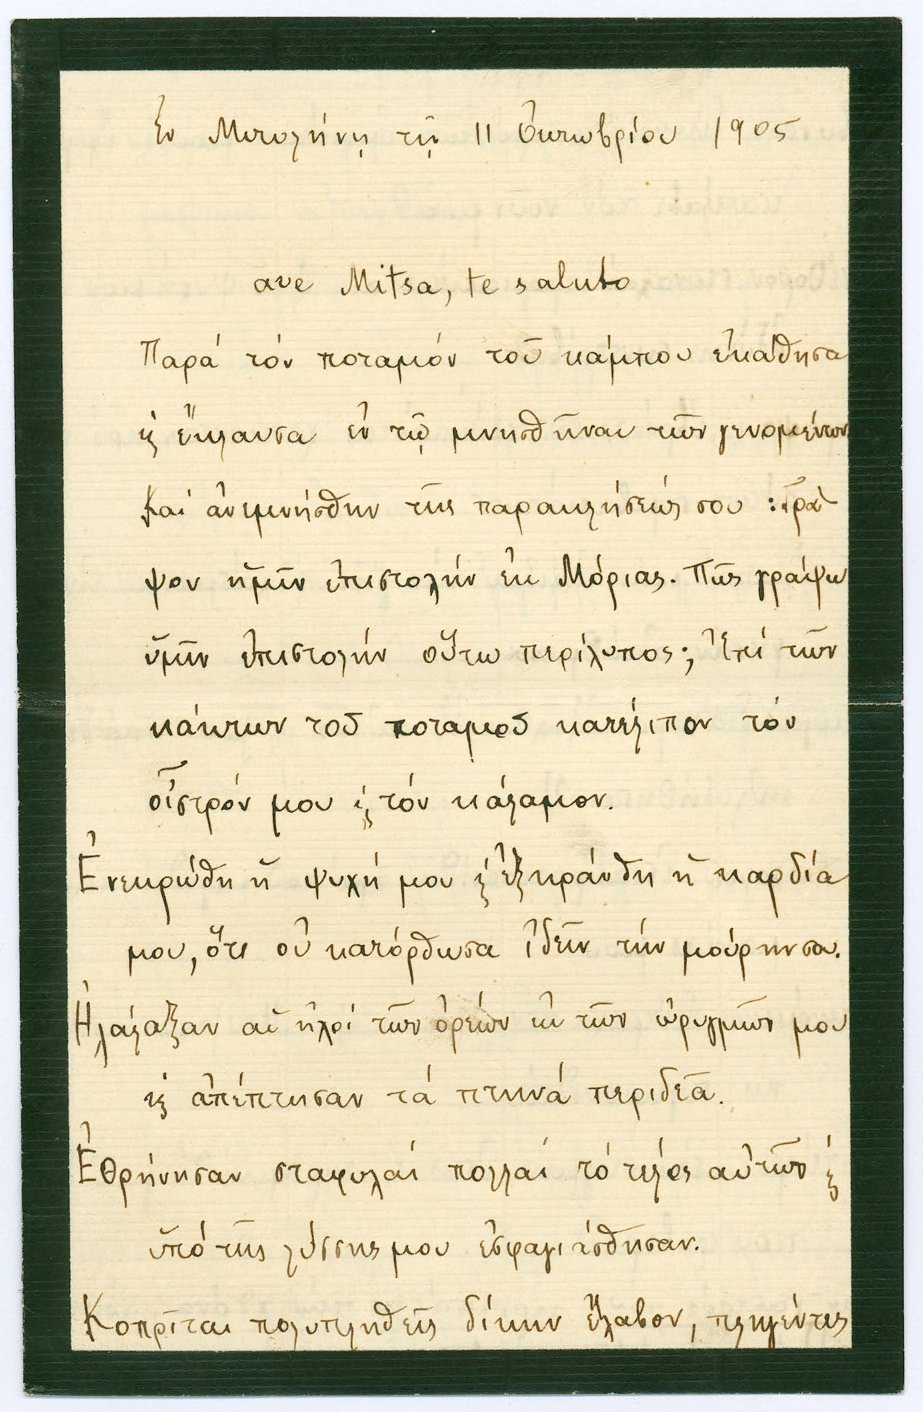 Ἐν Μυτιλήνῃ τῇ 11 Ὀκτωβρίου 1905
ave Mitsa, te saluto
Παρά τόν ποταμόν τοῦ κάμπου ἐκάθησα
κ ἔκλαυσα ἐν τῷ μνησθῆναι τῶν γενομένων
Καί ἀνεμνήσθην τῆς παρακλήσεώς σου : Γρά
ψον ἡμῖν ἐπιστολήν ἐκ Μόριας. Πῶς γράψω
ὑμῖν ἐπιστολήν οὕτω περίλυπος; Ἐπί τῶν
κάκτων τοῦ ποταμοῦ κατέλιπον τόν
οἶστρόν μου κ τόν κάλαμον.
Ἐνεκρώθη ἡ ψυχή μου κ ἐξηράνθη ἡ καρδία
μου, ὅτι οὐ κατόρθωσα ἰδεῖν τήν μούρην σου.
Ἠλάλαξαν αἱ ἠχοί τῶν ὀρέων ἐκ τῶν ὠρυγμῶν μου
κ ἀπέπτησαν τά πτηνά περιδεᾶ.
Ἐθρήνησαν σταφυλαί πολλαί τό τέλος αὐτῶν κ
ὑπό τῆς λύσσης μου ἐσφαγιάσθησαν.
Κοπρῖται πολυπληθεῖς δίκην ἔλαβον, πληγέντες